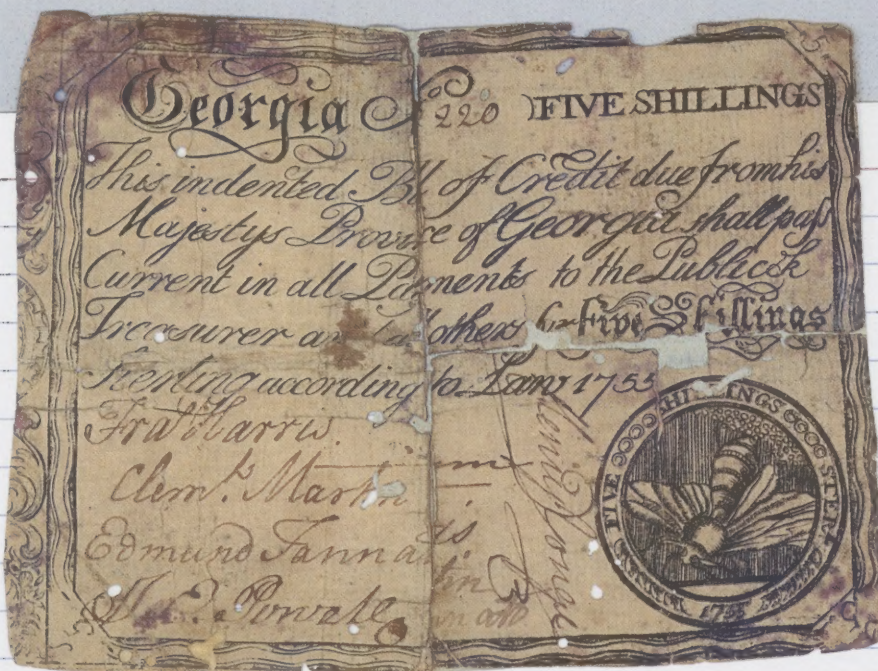 Georgia No 220 ) FIVE SHILLINGS
This indented Bill of Credit due from his
Majestys Province of Georgia shall pass
Current in all Payments to the Publick
Treasurer and all others for Five Shillings
Sterling according to Law 1755
Fra. Harris.
Clemt. Martin
Edmund Tannatt
Powell
Henry Yonge
FIVE SHILLINGS STERL
1755